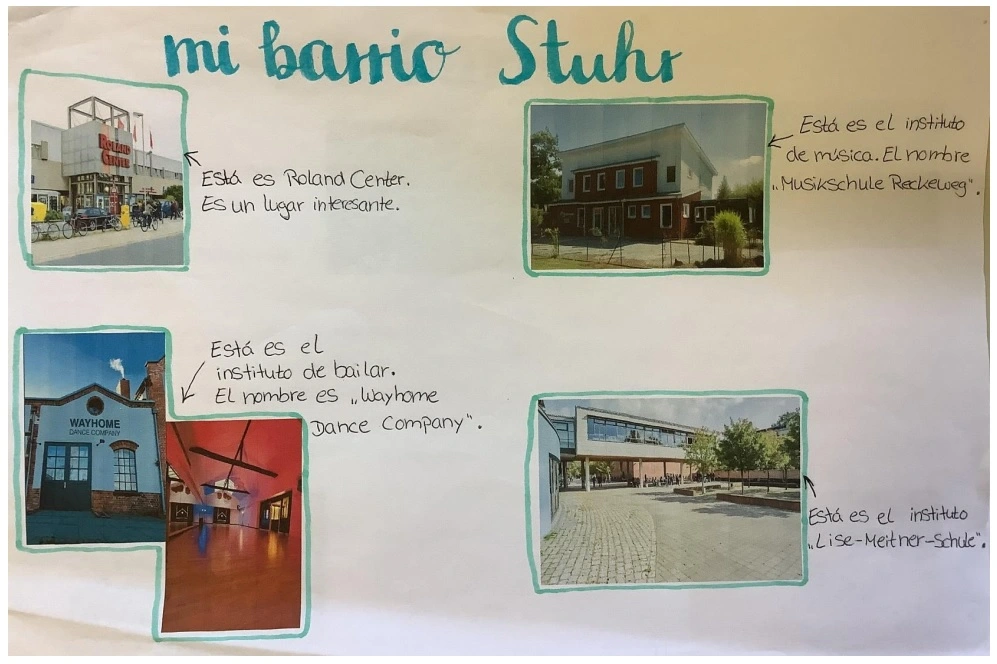 mi barrio Stuhr
ROLAND
CENTER
Está es Roland Center.
Es un lugar interesante.
Está es el instituto
de música. El nombre
„Musikschule Reckeweg“.
WAYHOME
DANCE COMPANY
Está es el
instituto de bailar.
El nombre es „Wayhome
Dance Company“.
Está es el instituto
„Lise-Meitner-Schule“.